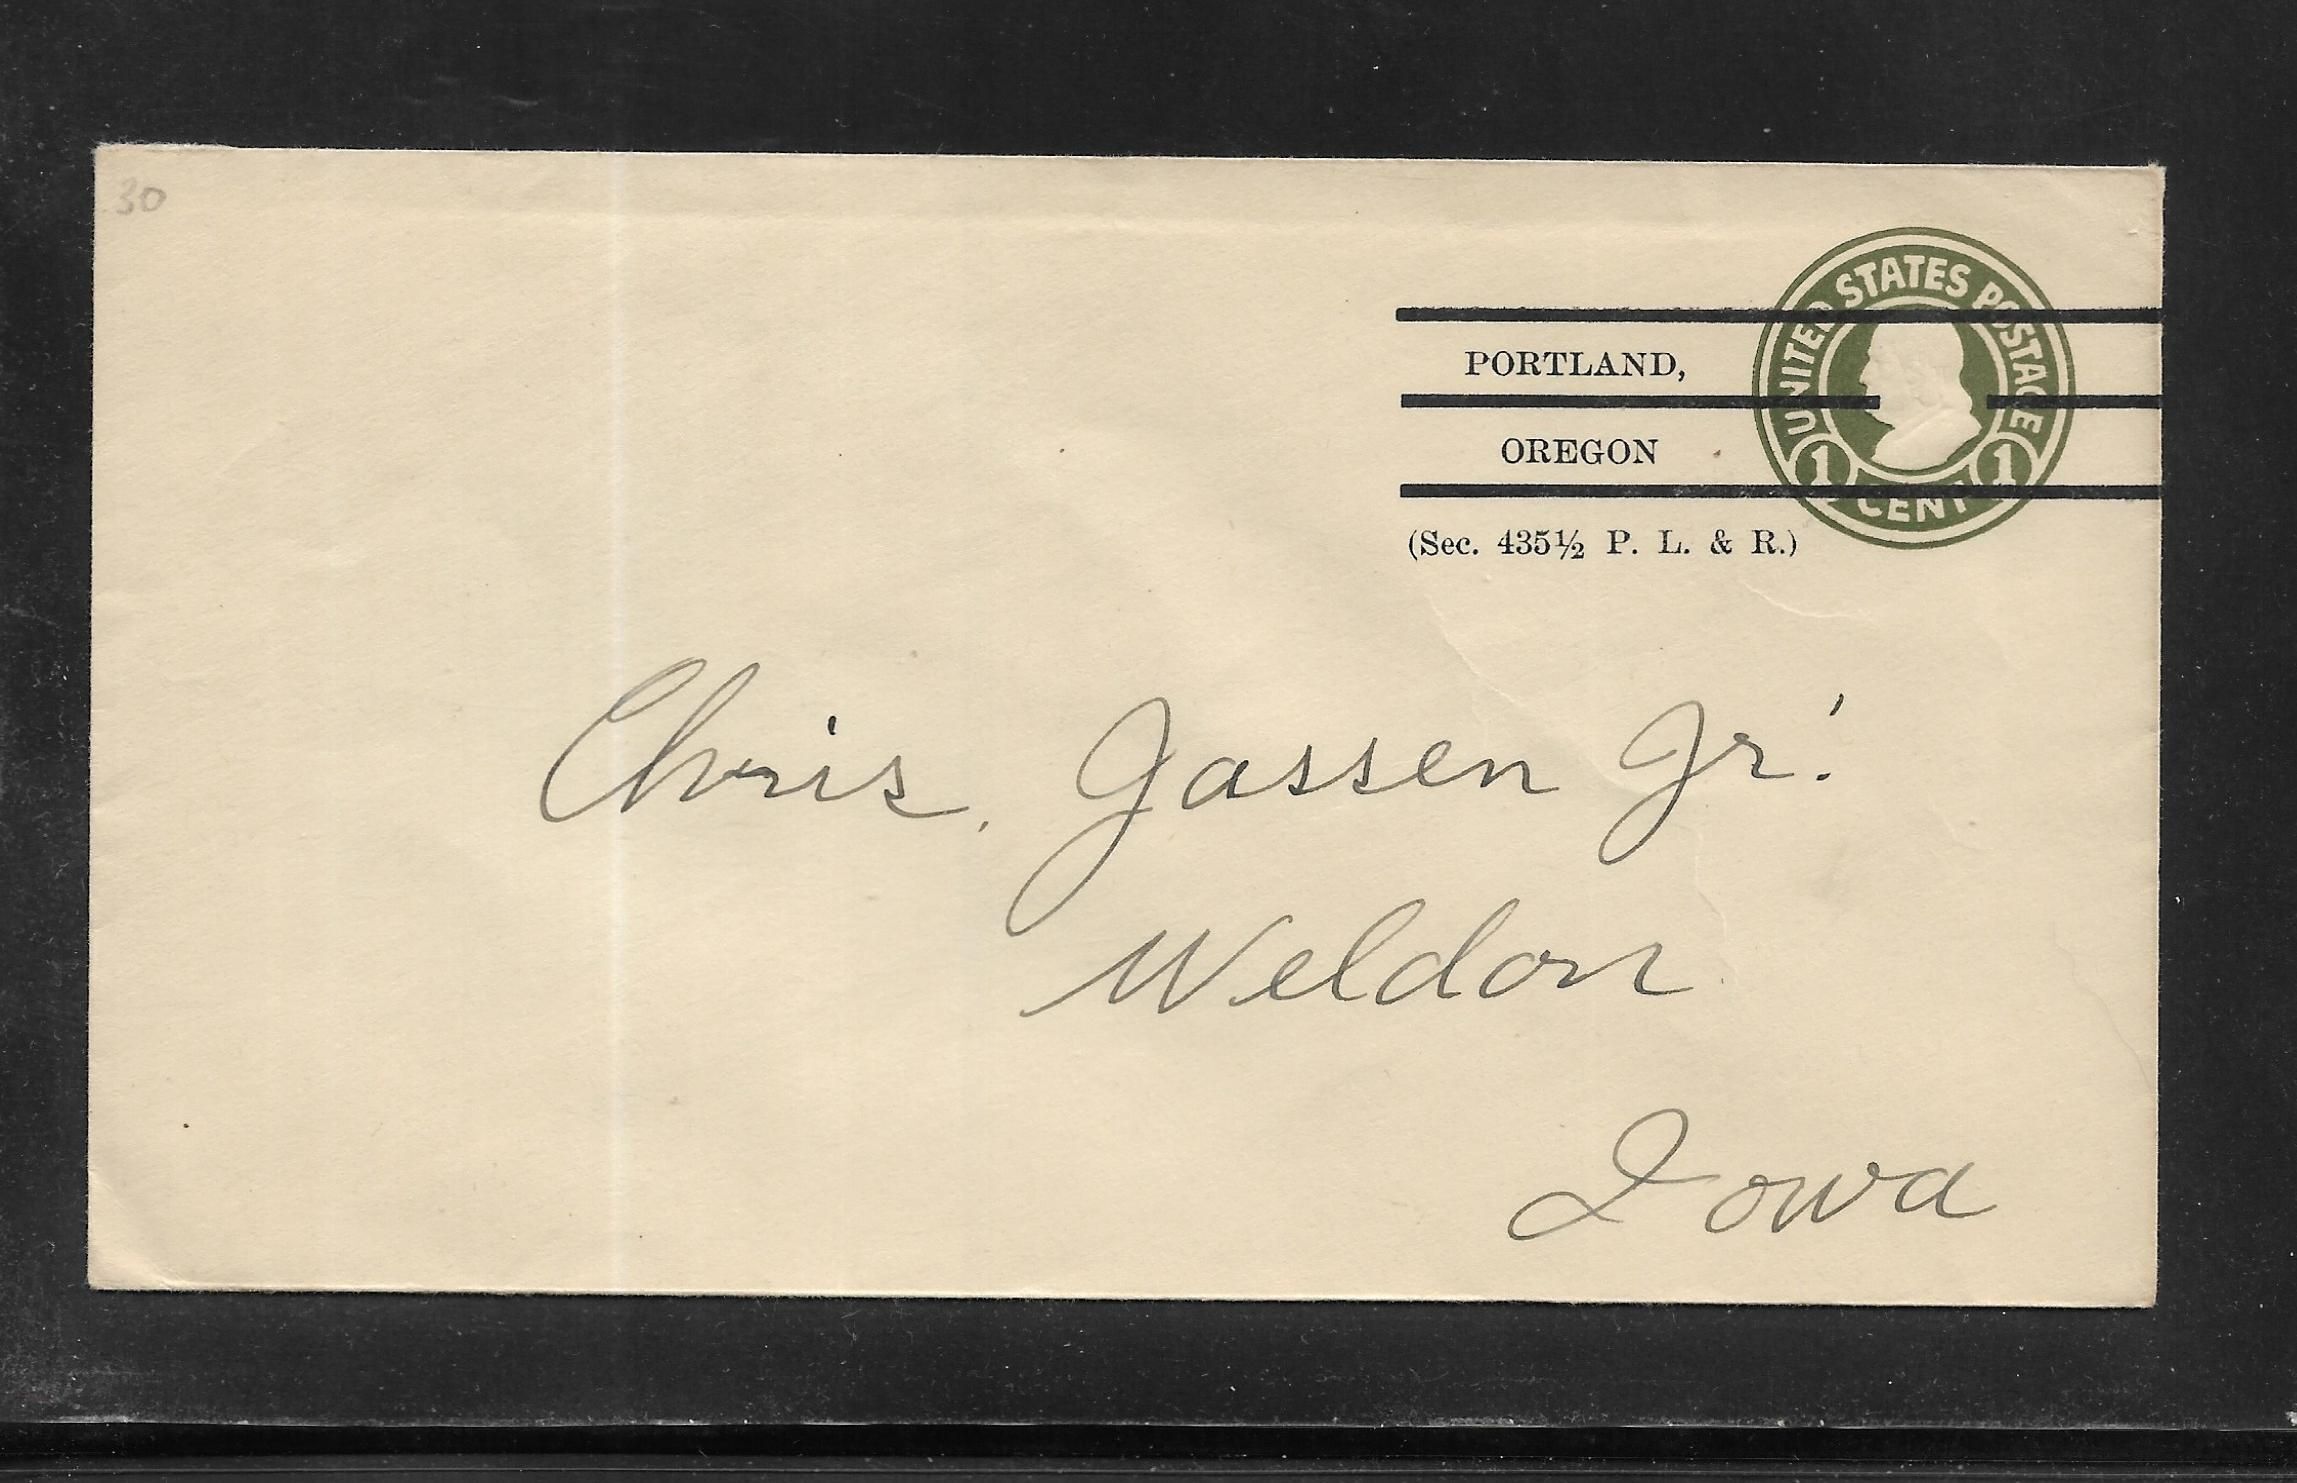 30
UNITED STATES POSTAGE
PORTLAND,
OREGON
1 CENT 1
(Sec. 435½ P. L. & R.)
Chris. Jassen Jr.
Weldon
Iowa